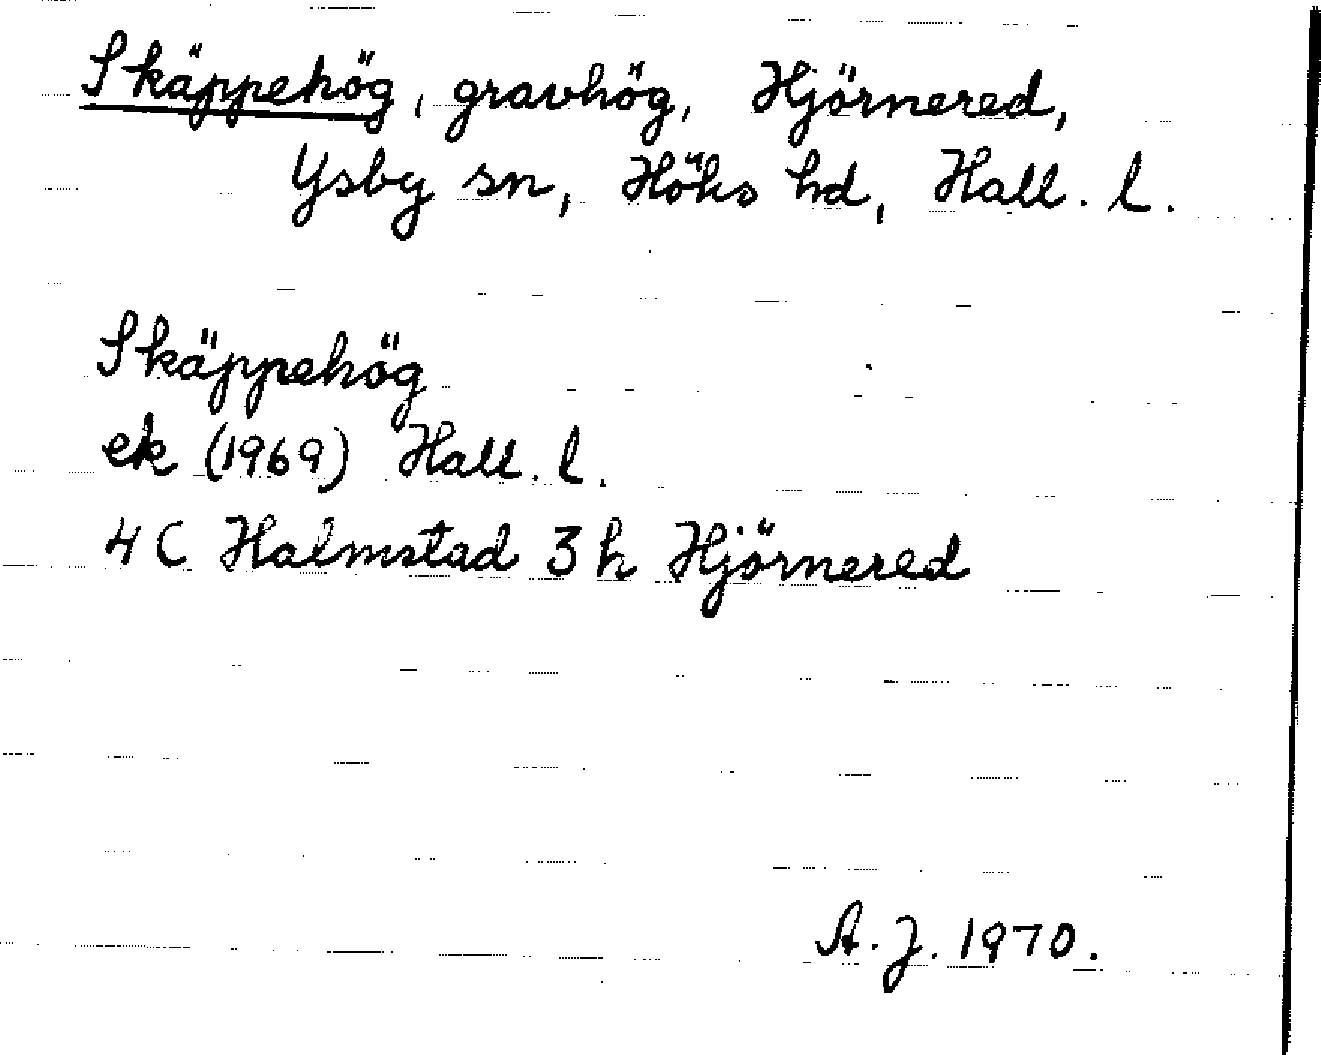 Skäppehög, gravhög, Hjörnered,
Ysby sn, Höks hd, Hall. l.
Skäppehög
ek (1969) Hall. l.
4C Halmstad 3h Hjörnered
A.J. 1970.